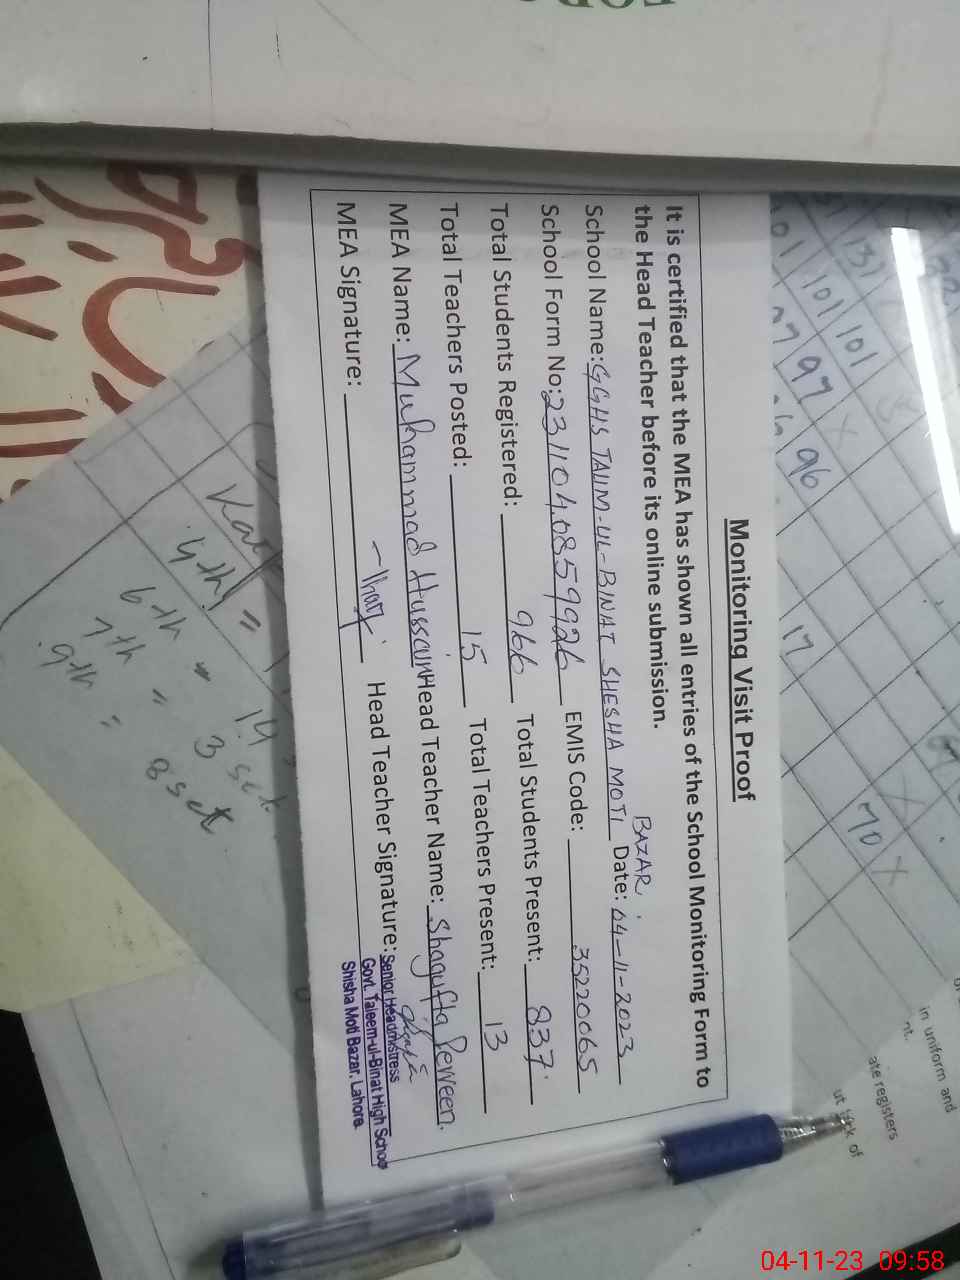 Monitoring Visit Proof
It is certified that the MEA has shown all entries of the School Monitoring Form to
the Head Teacher before its online submission.
BAZAR.
School Name: GGHS TALIM-UL-BINAT SHESHA MOTI Date: 04-11-2023
School Form No: 2311040859926 EMIS Code: 35220065
Total Students Registered: 966 Total Students Present: 837
Total Teachers Posted: 15 Total Teachers Present: 13
MEA Name: Muhammad Hussain Head Teacher Name: Shagufta Perveen.
MEA Signature: Head Teacher Signature:
Senior Headmistress
Govt. Taleem-ul-Binat High School
Shisha Moti Bazar, Lahore.
101 101
97 97 X
96 96
17
70 X
4th = 14
6th = 3 set
7th = 8 set
9th =
in uniform and
nt.
ate registers
ut of
04-11-23 09:58